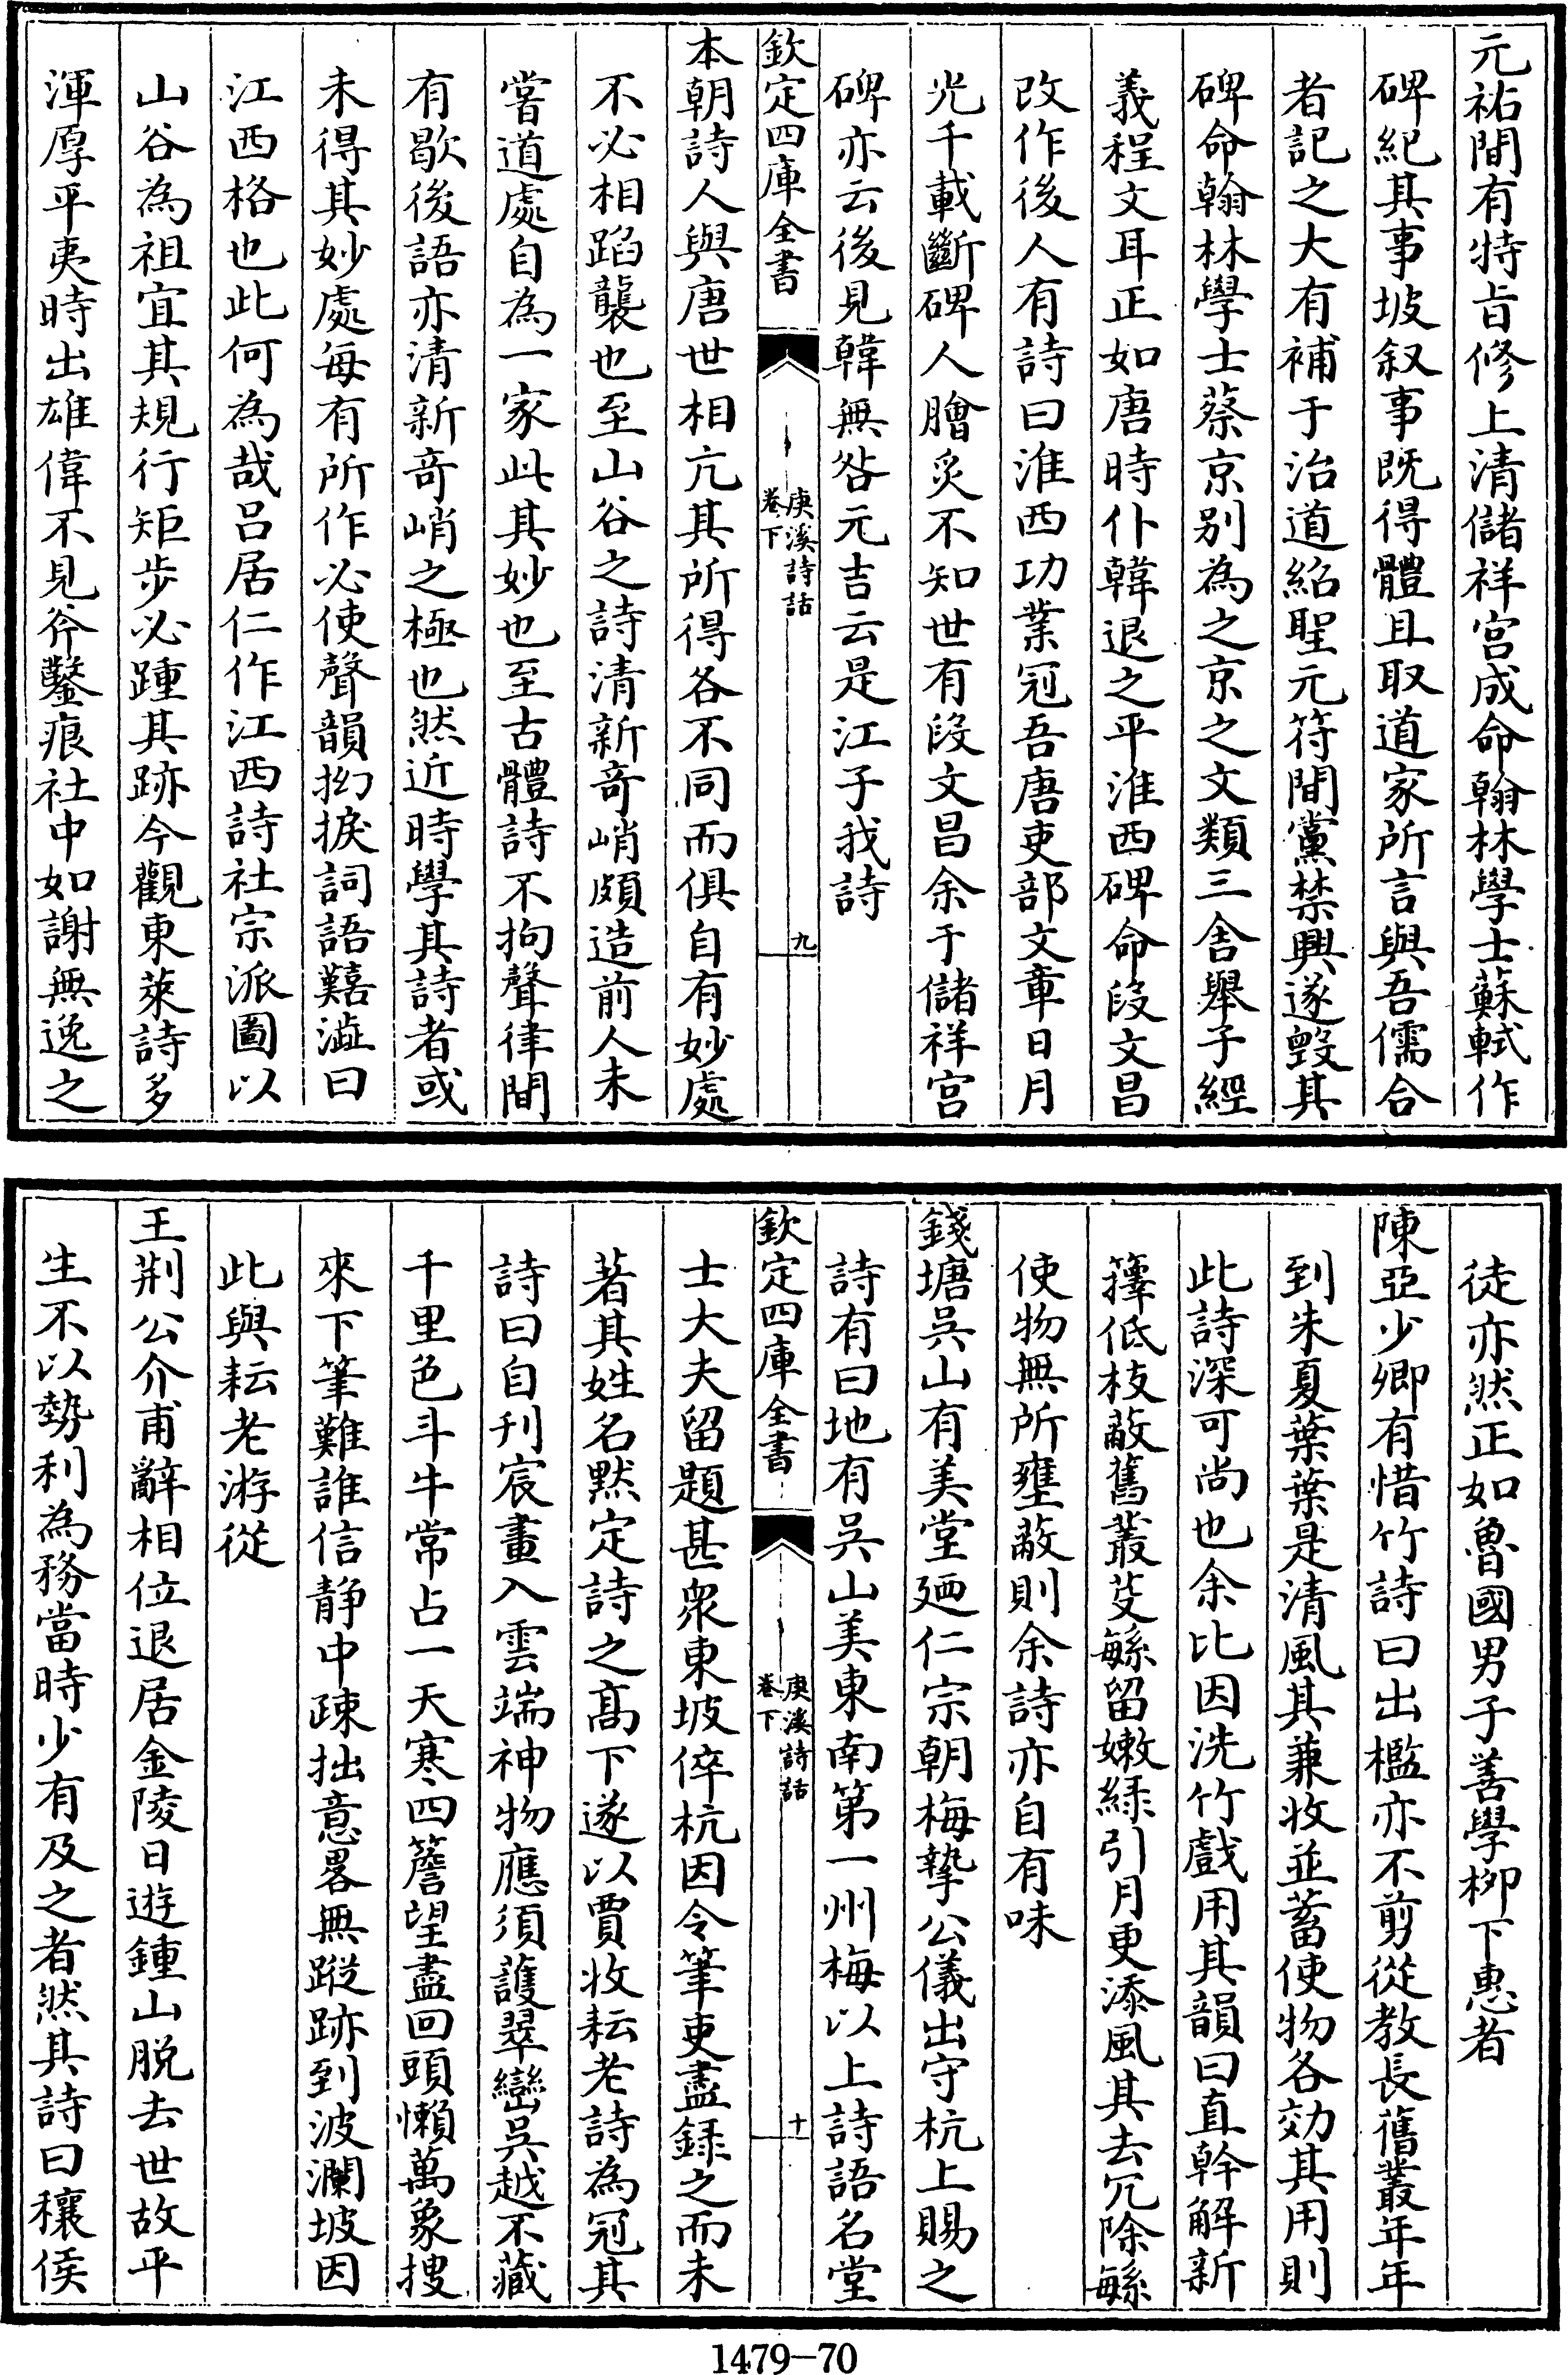 元祐間有特旨修上清儲祥宫成命翰林學士蘇軾作
碑紀其事坡叙事既得體且取道家所言與吾儒合
者記之大有補于治道紹聖元符間黨禁興遂毁其
碑命翰林學士蔡京别為之京之文類三舍舉子經
義程文耳正如唐時仆韓退之平淮西碑命段文昌
改作後人有詩曰淮西功業冠吾唐吏部文章日月
光千載斷碑人膾炙不知世有段文昌余于儲祥宫
碑亦云後見韓無咎元吉云是江子我詩
欽定四庫全書
庚溪詩話
卷下
九
本朝詩人與唐世相亢其所得各不同而俱自有妙處
不必相蹈襲也至山谷之詩清新奇峭頗造前人未
嘗道處自為一家此其妙也至古體詩不拘聲律間
有歇後語亦清新奇峭之極也然近時學其詩者或
未得其妙處每有所作必使聲韻拗捩詞語艱澁曰
江西格也此何為哉吕居仁作江西詩社宗派圖以
山谷為祖宜其規行矩步必踵其跡今觀東萊詩多
渾厚平夷時出雄偉不見斧鑿痕社中如謝無逸之
徒亦然正如魯國男子善學柳下惠者
陳亞少卿有惜竹詩曰出檻亦不剪從教長舊叢年年
到朱夏葉葉是清風其兼收並蓄使物各効其用則
此詩深可尚也余比因洗竹戲用其韻曰直幹解新
籜低枝蔽舊叢芟繇留嫩緑引月更添風其去冗除繇
使物無所壅蔽則余詩亦自有味
錢塘吳山有美堂廼仁宗朝梅摯公儀出守杭上賜之
詩有曰地有吳山美東南第一州梅以上詩語名堂
欽定四庫全書
庚溪詩話
卷下
十
士大夫留題甚衆東坡倅杭因令筆吏盡録之而未
著其姓名默定詩之髙下遂以賈收耘老詩為冠其
詩曰自刋宸畫入雲端神物應須護翠巒吳越不藏
千里色斗牛常占一天寒四簷望盡回頭懶萬象搜
來下筆難誰信静中疎拙意畧無蹤跡到波瀾坡因
此與耘老游從
王荆公介甫辭相位退居金陵日遊鍾山脱去世故平
生不以勢利為務當時少有及之者然其詩曰穰侯
1479-70